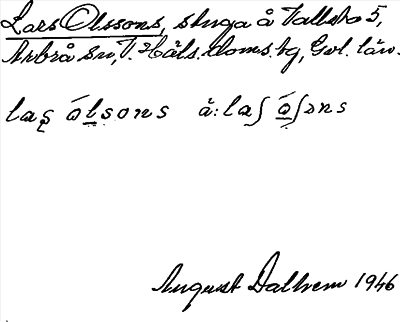 Lars Olssons, stuga å Tallsbo 5,
Arbrå sn, V. Häls. doms. tg, Gvl. län.
laʂ ólsons å: laʃ óʃəns
August Dalhem 1946